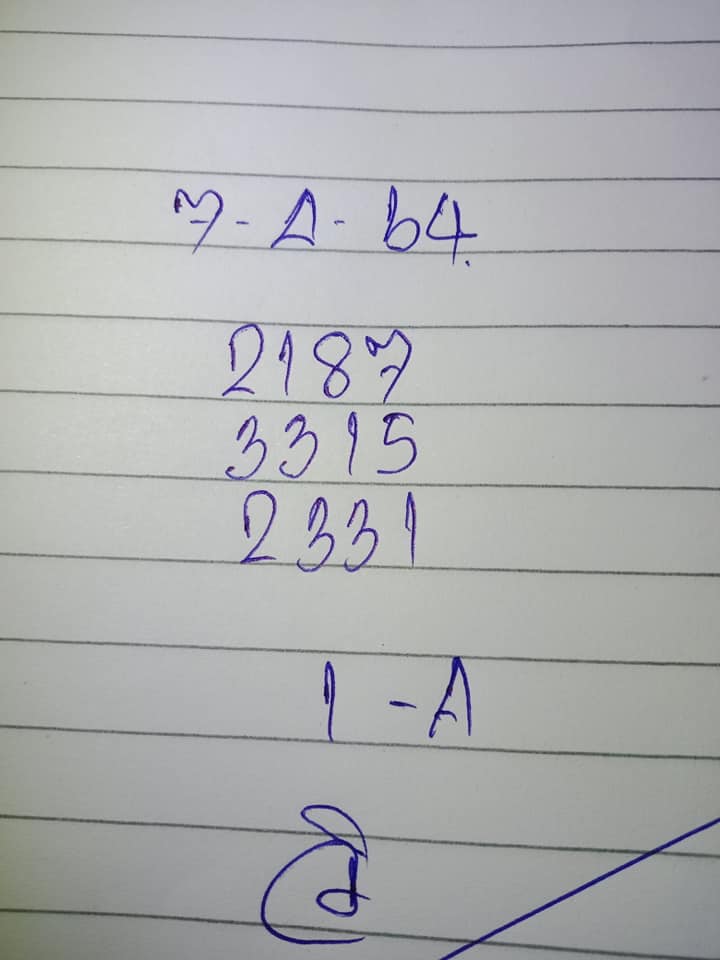 7-A-64.
2187
3315
2331
1-A